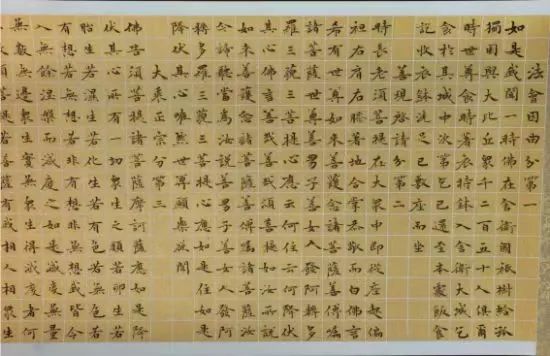 法會因由分第一
如是我聞一時佛在舍衛國祇樹給孤
獨園與大比丘眾千二百五十人俱爾
時世尊食時著衣持鉢入舍衛大城乞
食於其城中次第乞已還至本處飯食
訖收衣鉢洗足已敷座而坐
善現啟請分第二
時長老須菩提在大眾中即從座起偏
袒右肩右膝著地合掌恭敬而白佛言
希有世尊如來善護念諸菩薩善付囑
諸菩薩世尊善男子善女人發阿耨多
羅三藐三菩提心應云何住云何降伏
其心佛言善哉善哉須菩提如汝所說
如來善護念諸菩薩善付囑諸菩薩汝
今諦聽當為汝說善男子善女人發阿
耨多羅三藐三菩提心應如是住如是
降伏其心唯然世尊願樂欲聞
大乘正宗分第三
佛告須菩提諸菩薩摩訶薩應如是降
伏其心所有一切眾生之類若卵生若
胎生若濕生若化生若有色若無色若
有想若無想若非有想非無想我皆令
入無餘涅槃而滅度之如是滅度無量
無數無邊眾生實無眾生得滅度者何
菩薩有我相人相眾生